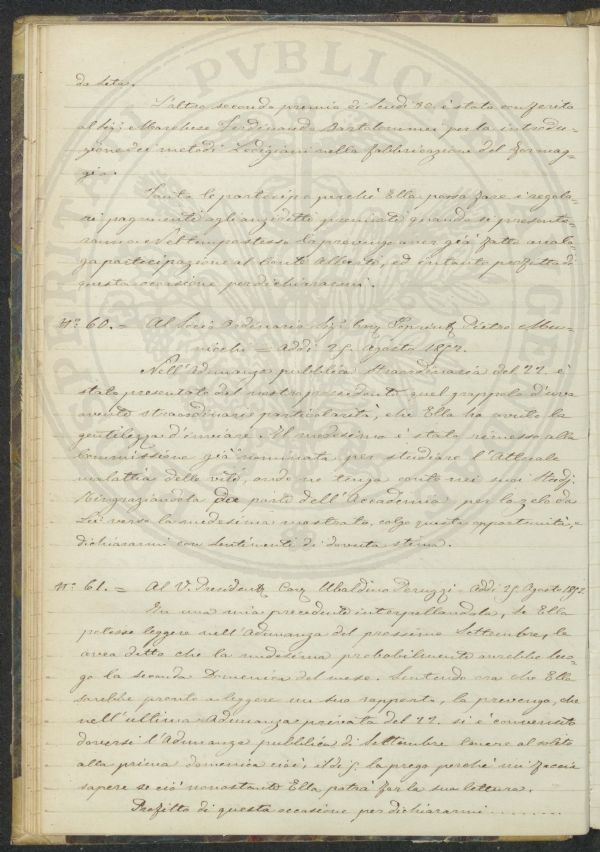 da seta.
L'altro secondo premio di Scudi 30. è stato conferito
al Sig: Marchese Ferdinando Bartolommei per la introdu-
zione dei metodi Lodigiani nella fabbricazione del formag-
gio.
Tanto le partecipo perché Ella possa fare i regola-
ri pagamenti agli anzidetti premiati quando si presente-
ranno. Nel tempo stesso La prevengo aver già fatta analo-
ga partecipazione al Conte Alberti, ed intanto profitto di
questa occasione per dichiararmi.
N.° 60. = Al Socio Ordinario Sig. Cav. Soprint. Pietro Meu-
nochi = Addì 25. Agosto 1852.
Nell'Adunanza pubblica straordinaria del 22. è
stato presentato dal nostro presidente quel grappolo d'uva
avente straordinarie particolarità, che Ella ha avuto la
gentilezza d'inviare. Il medesimo è stato rimesso alla
Commissione già nominata per studiare l'Attuale
malattia delle viti, onde ne tenga conto nei suoi studj.
Ringraziandola per parte dell'Accademia per lo zelo da
Lei verso la medesima mostrato, colgo questa opportunità, e
dichiararmi con sentimenti di dovuta stima.
N.° 61. = Al V. Presidente Cav. Ubaldino Peruzzi - Addì 25. Agosto 1852.
In una mia precedente interpellandola, se Ella
potesse leggere nell'Adunanza del prossimo Settembre, le
avea detto che la medesima probabilmente avrebbe luo-
go la seconda Domenica del mese. Sentendo ora che Ella
sarebbe pronto a leggere un suo rapporto, la prevengo, che
nell'ultima Adunanza privata del 22. si è convenuto
doversi l'Adunanza pubblica di Settembre tenere al solito
alla prima domenica cioè, il dì 5. la prego perché mi faccia
sapere se ciò nonostante Ella potrà far la sua lettura.
Profitto di questa occasione per dichiararmi